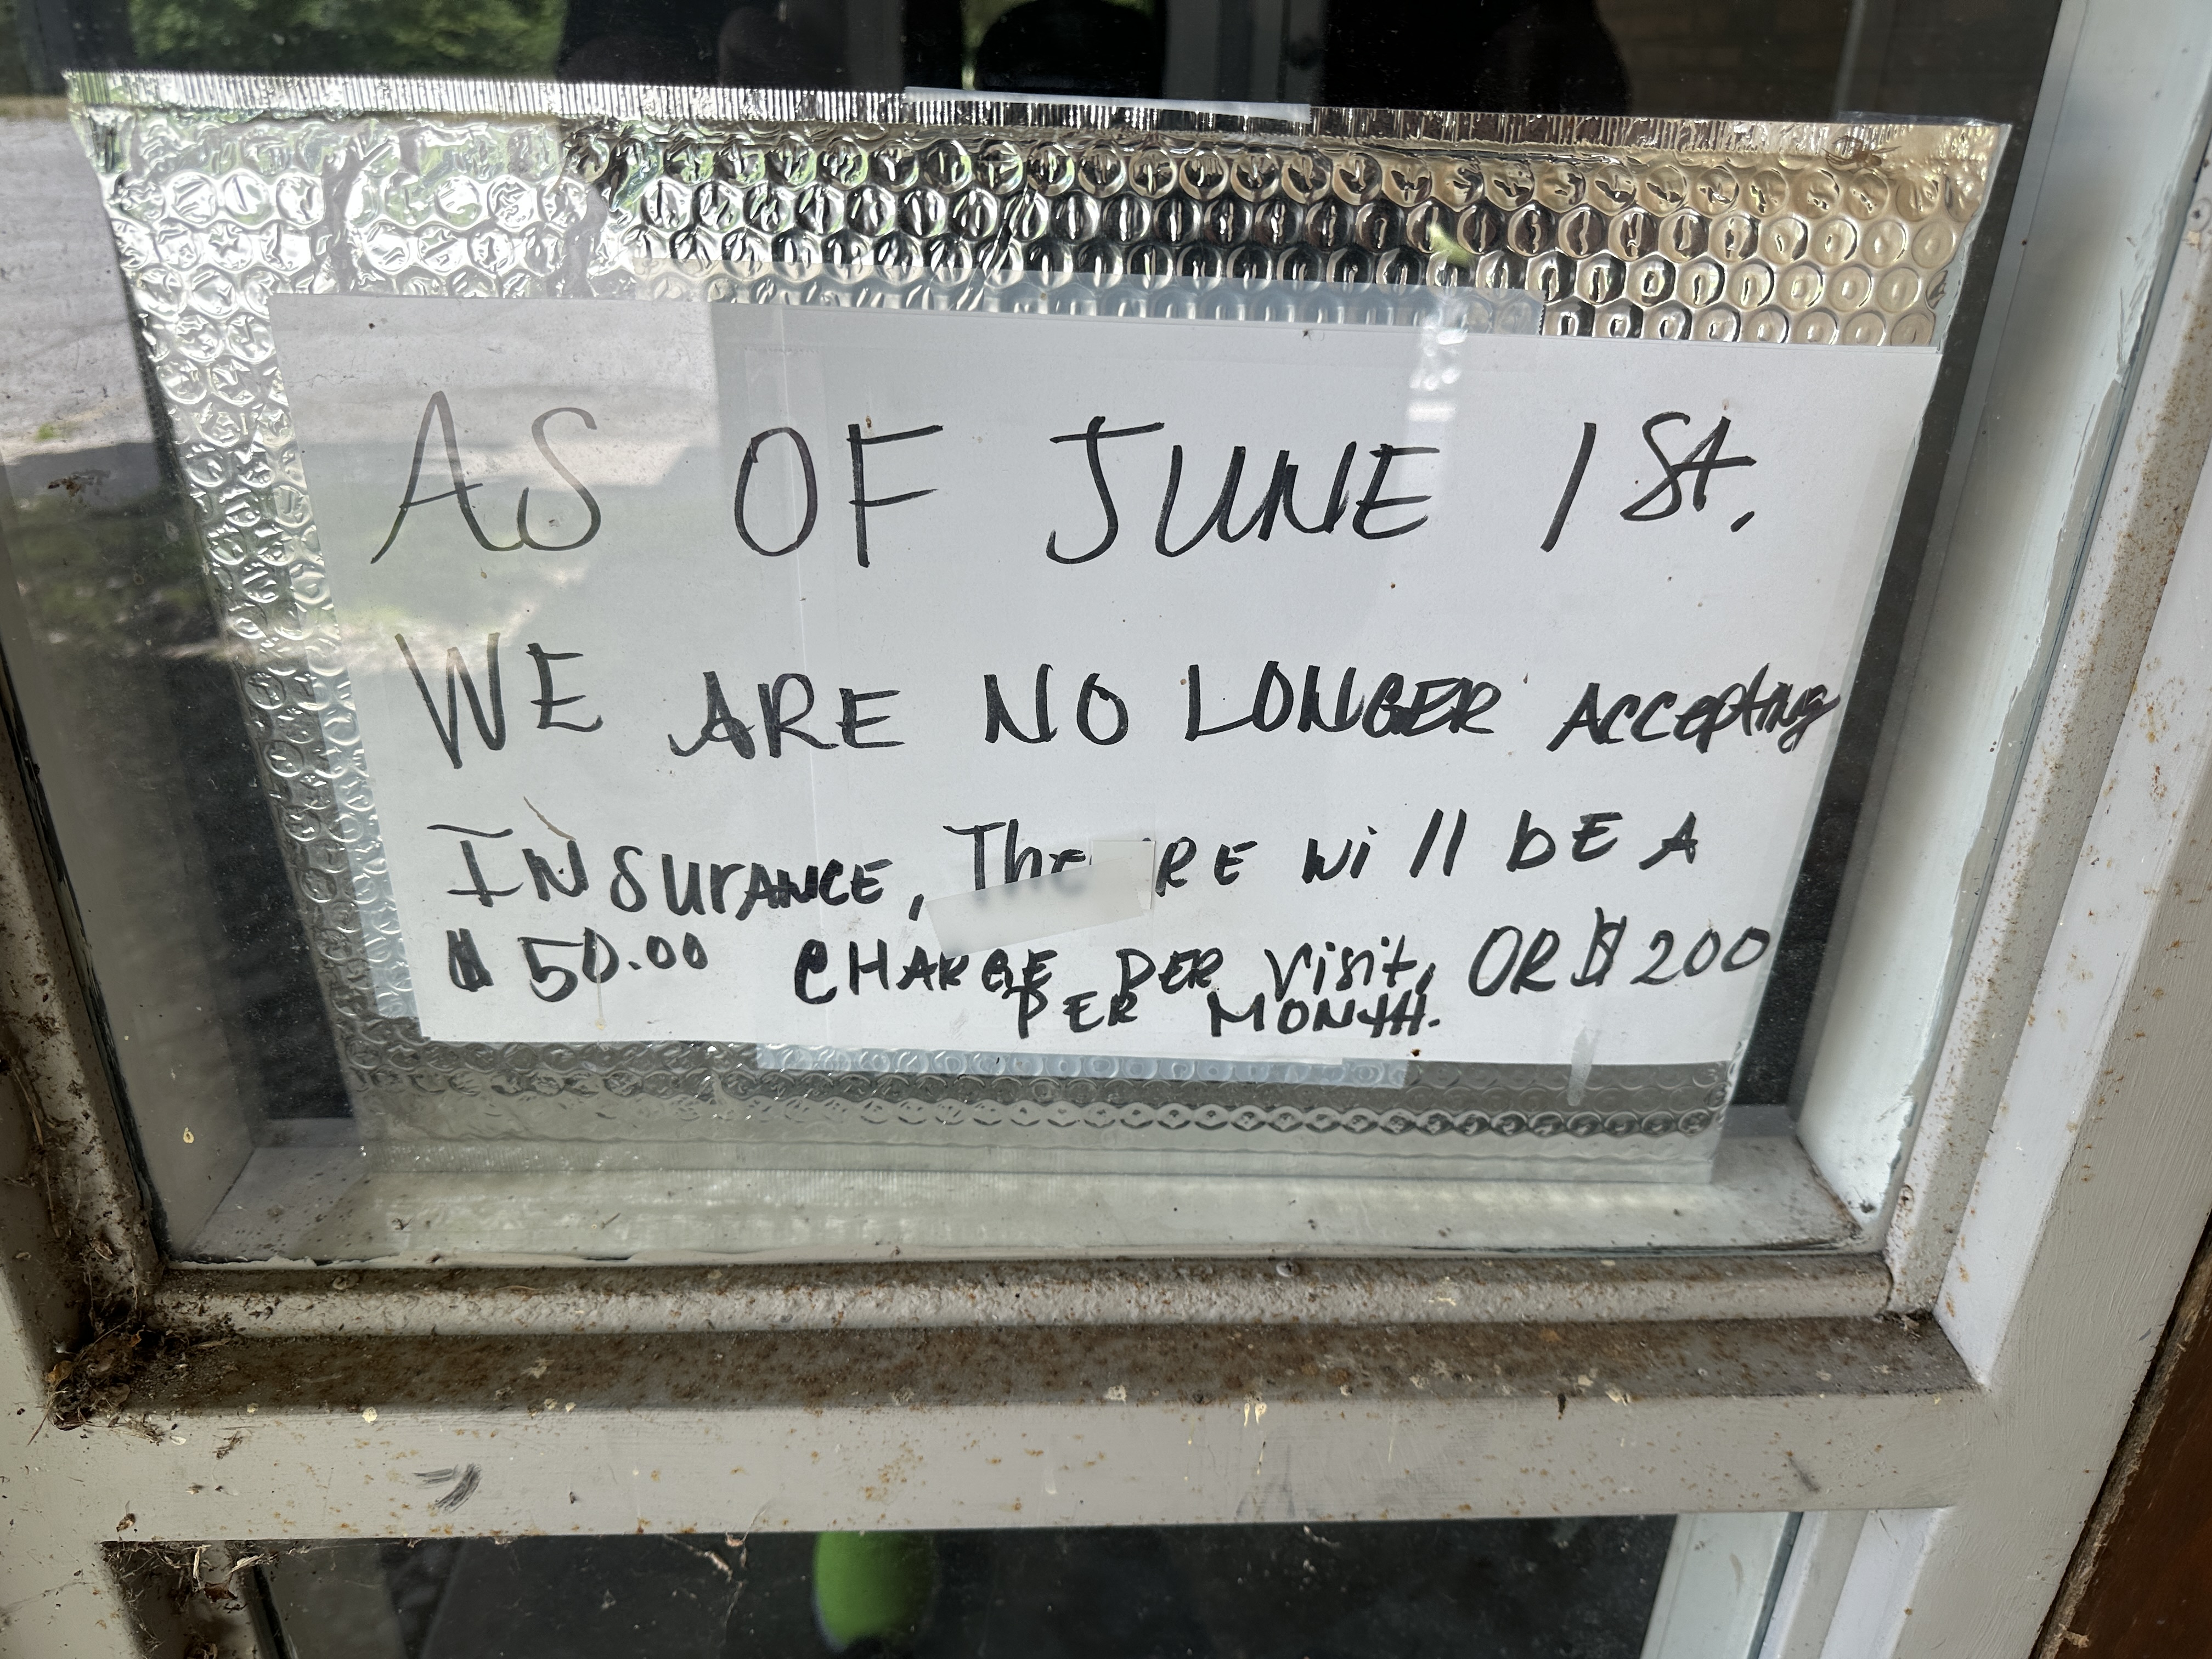 AS OF JUNE 1St.
WE ARE NO LONGER Accepting
INSurANCE, TheRE will bE A
$50.00 CHARGE PER Visit, OR $200
PER MONtH.